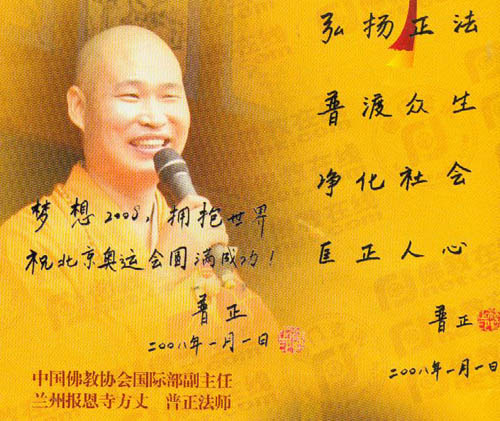 弘扬正法
普渡众生
净化社会
匡正人心
普正
二〇〇八年一月一日
梦想2008，拥抱世界
祝北京奥运会圆满成功！
普正
二〇〇八年一月一日
中国佛教协会国际部副主任
兰州报恩寺方丈 普正法师